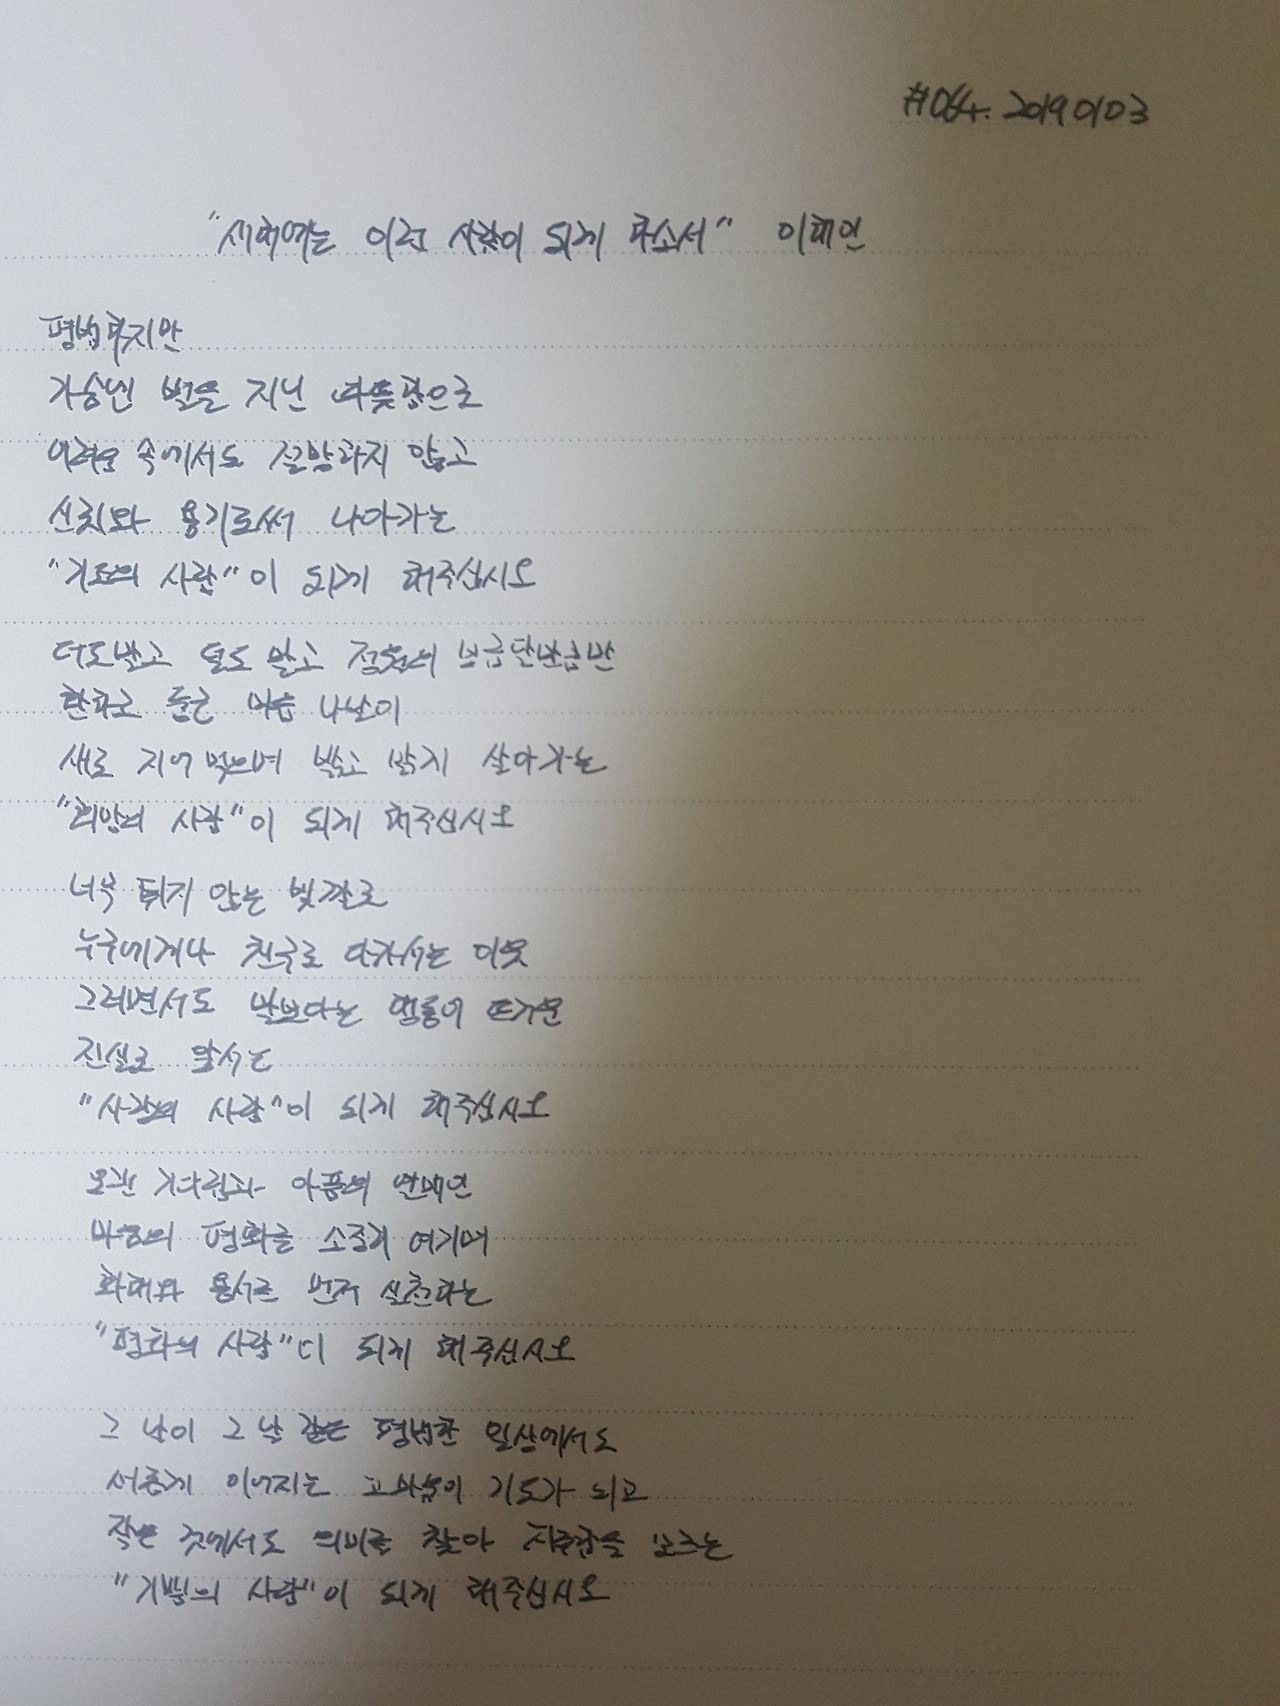 #064. 20190103
"새해에는 이런 사람이 되게 하소서" 이해인
평범하지만
가슴엔 별을 지닌 따뜻함으로
어려움 속에서도 절망하지 않고
신뢰와 용기로써 나아가는
"기도의 사람"이 되게 해주십시오
더도말고 덜도 말고 정월의 보름달만큼만
환하고 둥근 마음 나날이
새로 지어 먹으며 밝고 맑게 살아가는
"희망의 사람"이 되게 해주십시오
너무 튀지 않는 빛깔로
누구에게나 친구로 다가서는 이웃
그러면서도 말보다는 행동이 뜨거운
진실로 앞서는
"사랑의 사람"이 되게 해주십시오
오랜 기다림과 아픔의 열매인
마음의 평화를 소중히 여기며
화해와 용서를 먼저 실천하는
"평화의 사람"이 되게 해주십시오
그 날이 그 날 같은 평범한 일상에서도
새롭게 이어지는 고마움이 기도가 되고
작은 것에서도 의미를 찾아 지루함을 모르는
"기쁨의 사람"이 되게 해주십시오